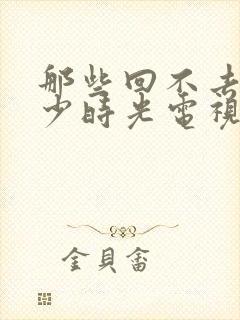 那些回不去
少時光電視
金貝畲